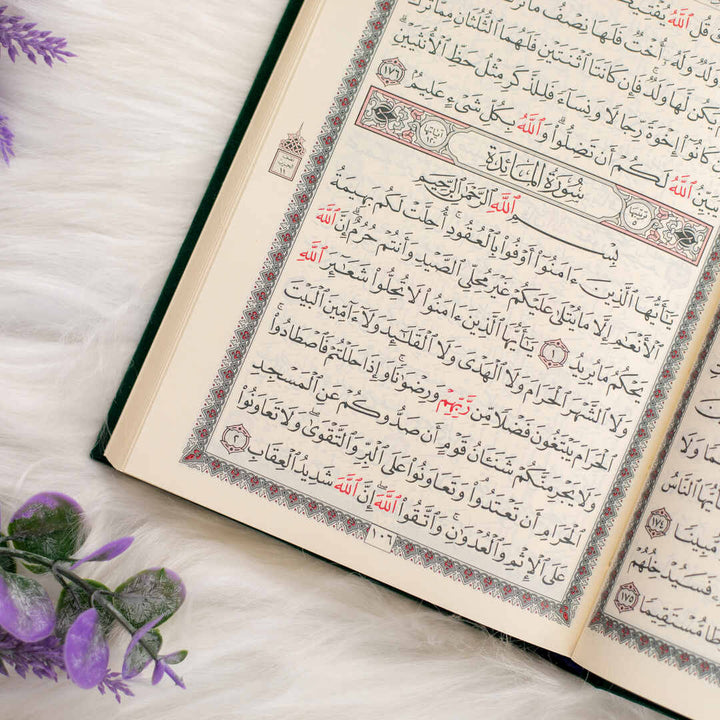 وَلَا
أَيُّهَا ٱلنَّاسُ
مُّبِينًا ١٧٤
فَسَيُدْخِلُهُمْ
مُّسْتَقِيمًا ١٧٥
قُلِ ٱللَّهُ
وَلَدٌ وَلَهُۥٓ أُخْتٌ فَلَهَا نِصْفُ مَا
يَكُن لَّهَا وَلَدٌ فَإِن كَانَتَا ٱثْنَتَيْنِ فَلَهُمَا ٱلثُّلُثَانِ مِمَّا تَرَكَ
كَانُوٓا۟ إِخْوَةً رِّجَالًا وَنِسَآءً فَلِلذَّكَرِ مِثْلُ حَظِّ ٱلْأُنثَيَيْنِ
ٱللَّهُ لَكُمْ أَن تَضِلُّوا۟ وَٱللَّهُ بِكُلِّ شَىْءٍ عَلِيمٌۢ ١٧٦
ترتيبها ٥ سُورَةُ المَائِدَةِ آياتها ١٢٠
بِسْمِ ٱللَّهِ ٱلرَّحْمَٰنِ ٱلرَّحِيمِ
يَٰٓأَيُّهَا ٱلَّذِينَ ءَامَنُوٓا۟ أَوْفُوا۟ بِٱلْعُقُودِ أُحِلَّتْ لَكُم بَهِيمَةُ
ٱلْأَنْعَٰمِ إِلَّا مَا يُتْلَىٰ عَلَيْكُمْ غَيْرَ مُحِلِّى ٱلصَّيْدِ وَأَنتُمْ حُرُمٌ إِنَّ ٱللَّهَ
يَحْكُمُ مَا يُرِيدُ ١ يَٰٓأَيُّهَا ٱلَّذِينَ ءَامَنُوا۟ لَا تُحِلُّوا۟ شَعَٰٓئِرَ ٱللَّهِ
وَلَا ٱلشَّهْرَ ٱلْحَرَامَ وَلَا ٱلْهَدْىَ وَلَا ٱلْقَلَٰٓئِدَ وَلَآ ءَآمِّينَ ٱلْبَيْتَ
ٱلْحَرَامَ يَبْتَغُونَ فَضْلًا مِّن رَّبِّهِمْ وَرِضْوَٰنًا وَإِذَا حَلَلْتُمْ فَٱصْطَادُوا۟
وَلَا يَجْرِمَنَّكُمْ شَنَـَٔانُ قَوْمٍ أَن صَدُّوكُمْ عَنِ ٱلْمَسْجِدِ
ٱلْحَرَامِ أَن تَعْتَدُوا۟ وَتَعَاوَنُوا۟ عَلَى ٱلْبِرِّ وَٱلتَّقْوَىٰ وَلَا تَعَاوَنُوا۟
عَلَى ٱلْإِثْمِ وَٱلْعُدْوَٰنِ وَٱتَّقُوا۟ ٱللَّهَ إِنَّ ٱللَّهَ شَدِيدُ ٱلْعِقَابِ ٢
١٠٦
نصف
الحزب
١١